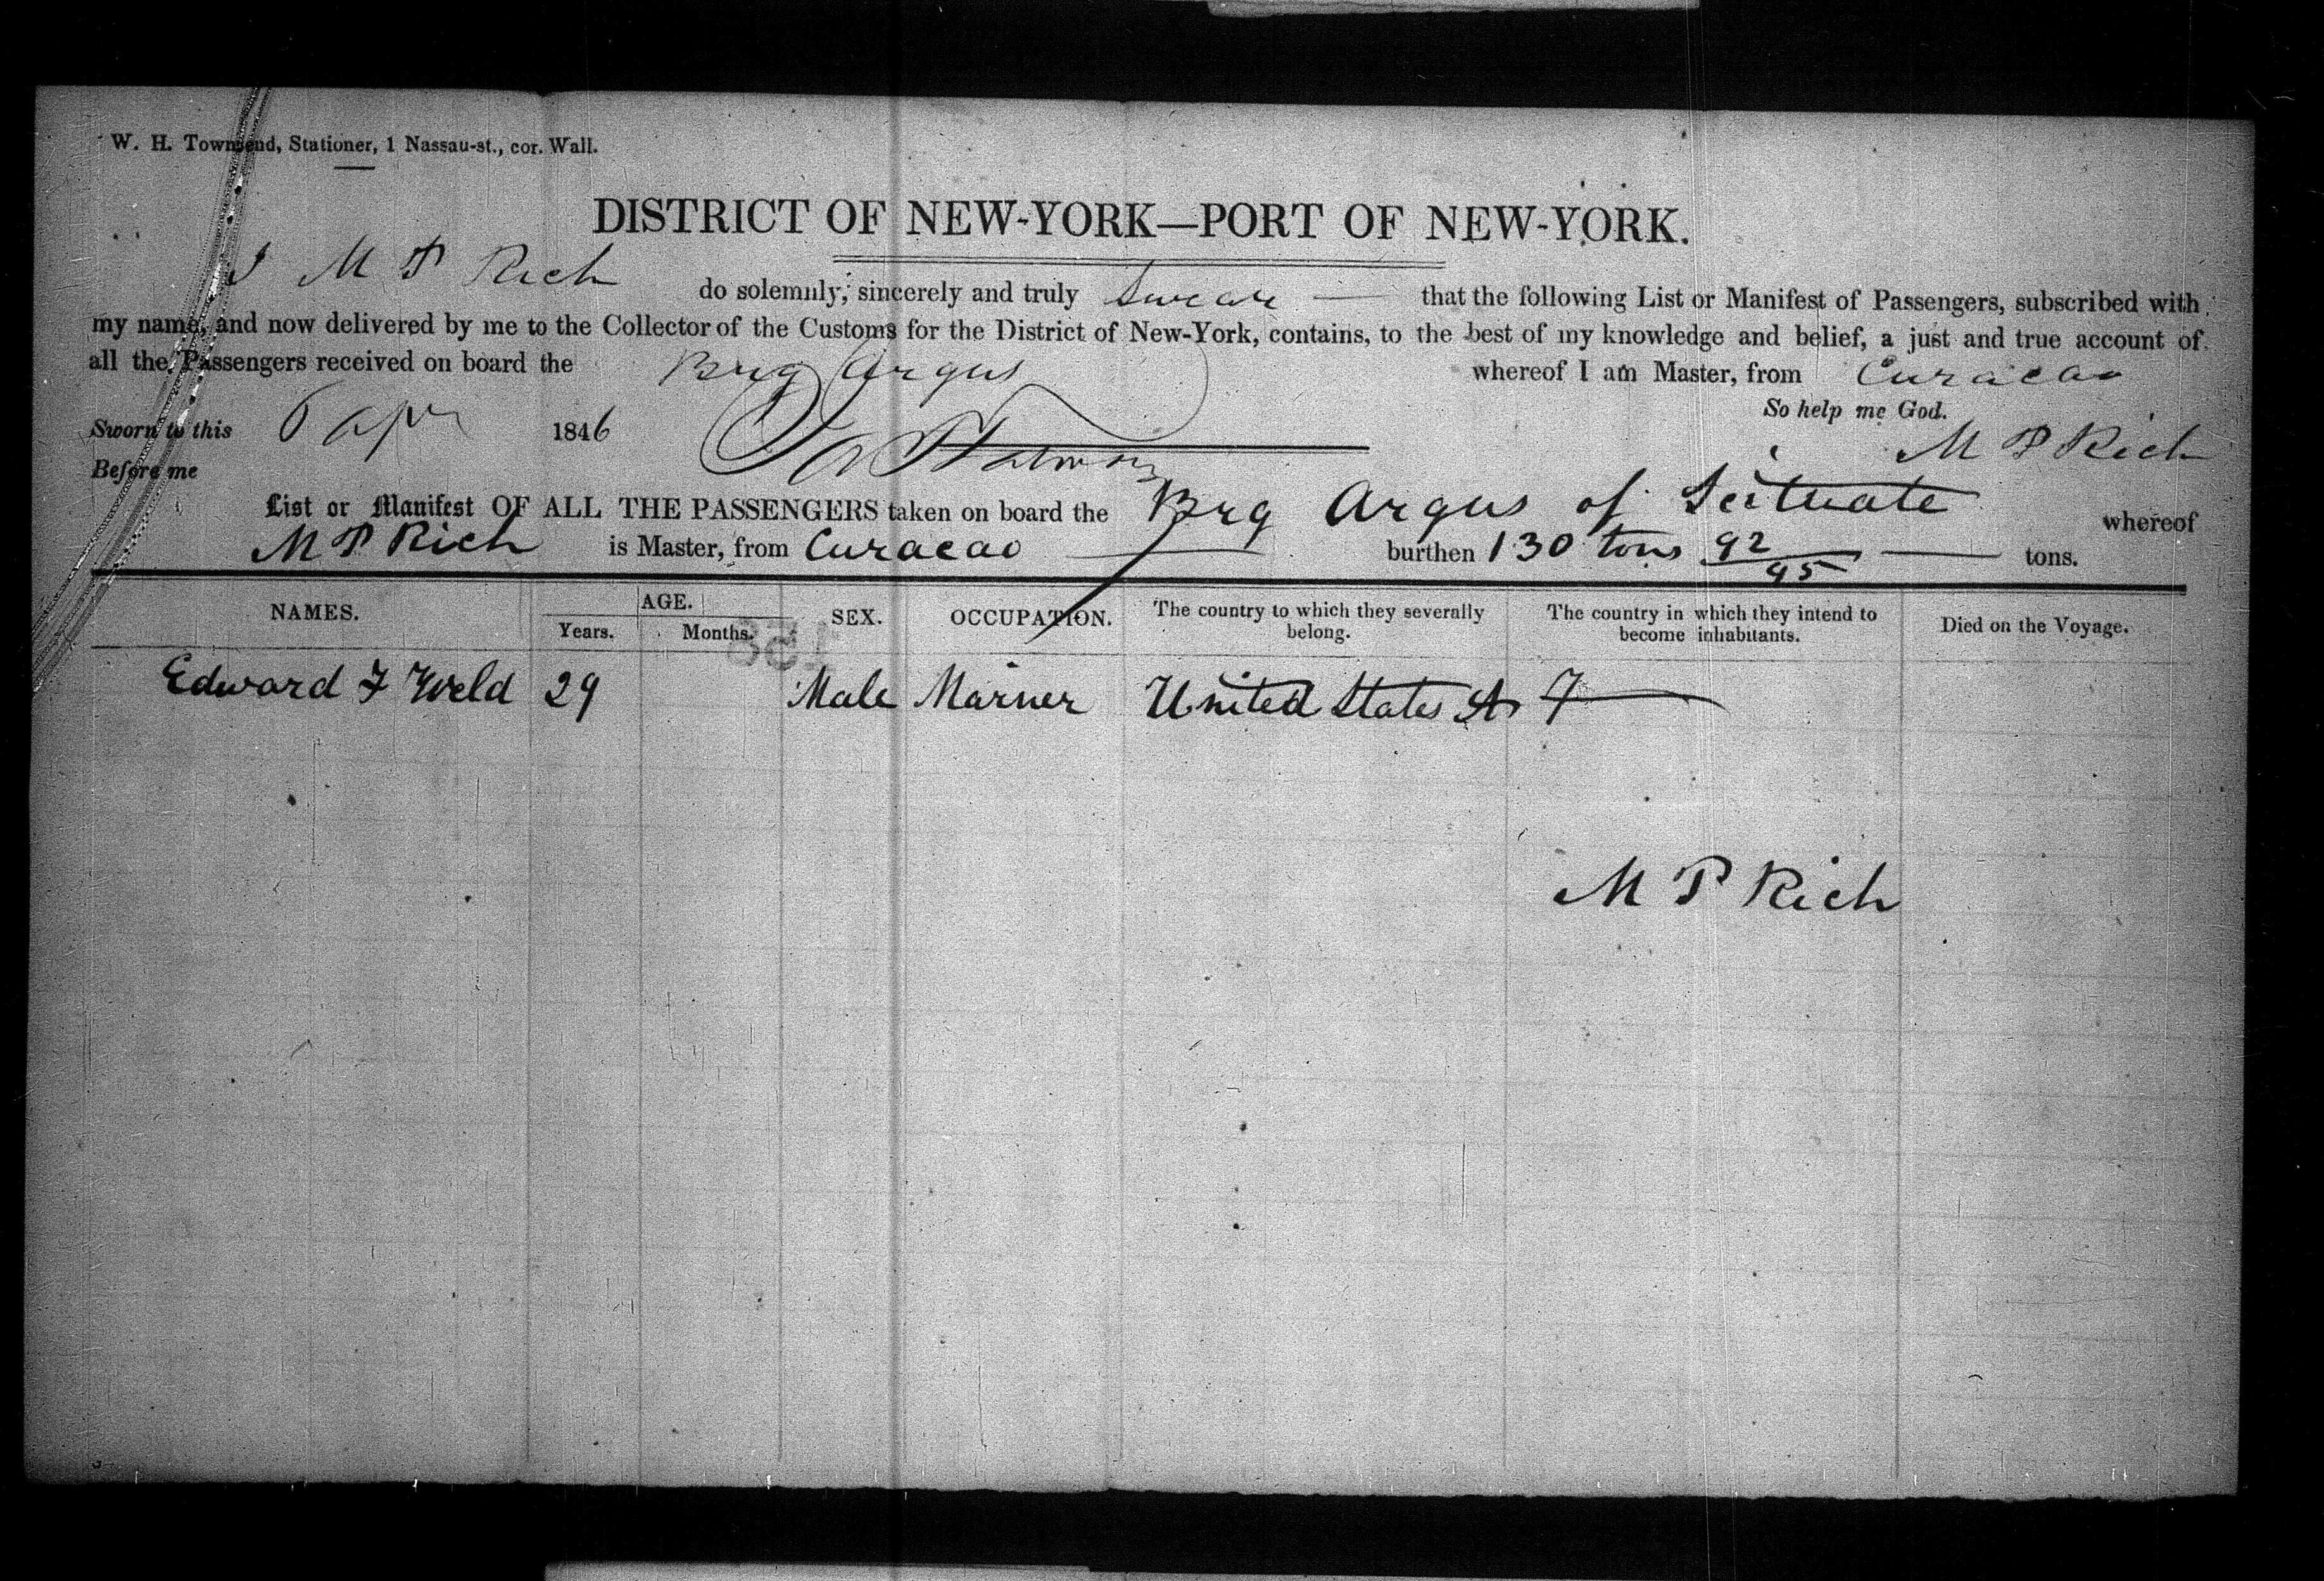 W. H. Townsend, Stationer, 1 Nassau-st., cor. Wall.
DISTRICT OF NEW-YORK—PORT OF NEW-YORK.
I M P Rich do solemnly, sincerely and truly Swear that the following List or Manifest of Passengers, subscribed with
my name, and now delivered by me to the Collector of the Customs for the District of New-York, contains, to the best of my knowledge and belief, a just and true account of
all the Passengers received on board the Brig Argus whereof I am Master, from Curacao
So help me God.
Sworn to this Apr 1846
M P Rich
Before me
List or Manifest OF ALL THE PASSENGERS taken on board the Brg Argus of Scituate whereof
M P Rich is Master, from Curacao burthen 130 tons 92/95 tons.
NAMES. AGE. Years. Months. SEX. OCCUPATION. The country to which they severally belong. The country in which they intend to become inhabitants. Died on the Voyage.
Edward F Weld 29 Male Mariner United States
M P Rich